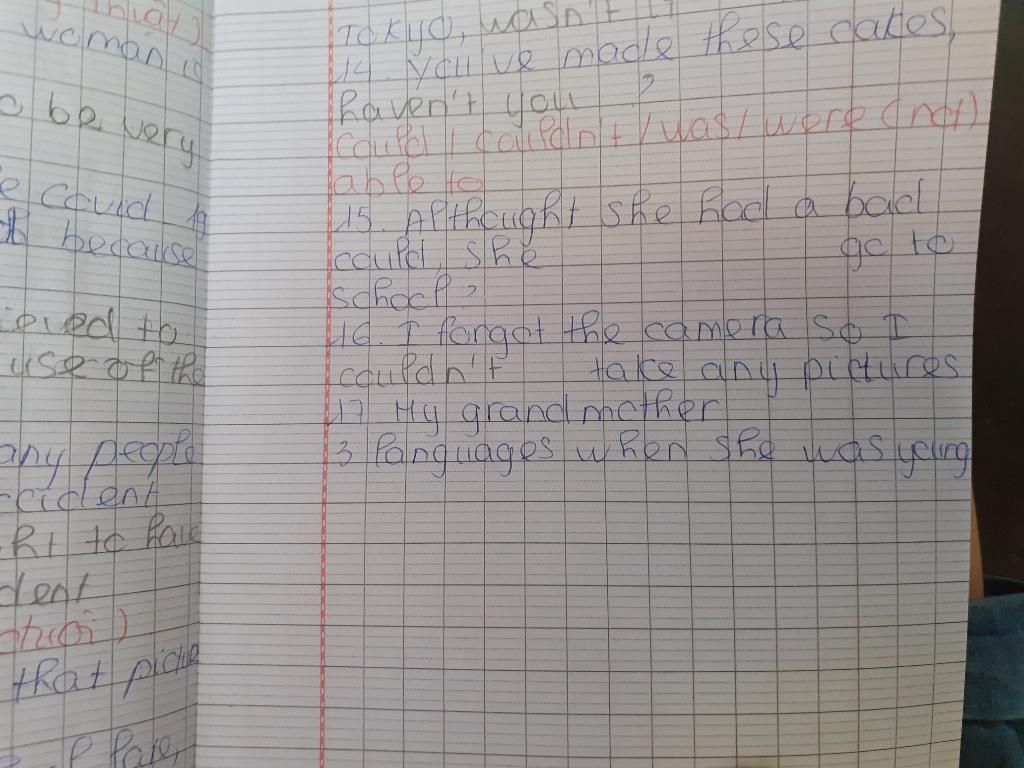 woman is
be very
could
because
to
use of the
any people
to have
that picture
Tokyo, wasn't it
14. you've made these cakes,
haven't you ?
could / couldn't / was / were (not)
able to
15. Althought she had a bad
could, she go to
school?
16. I forgot the camera so I
couldn't take any pictures
17 My grandmother
3 languages when she was young